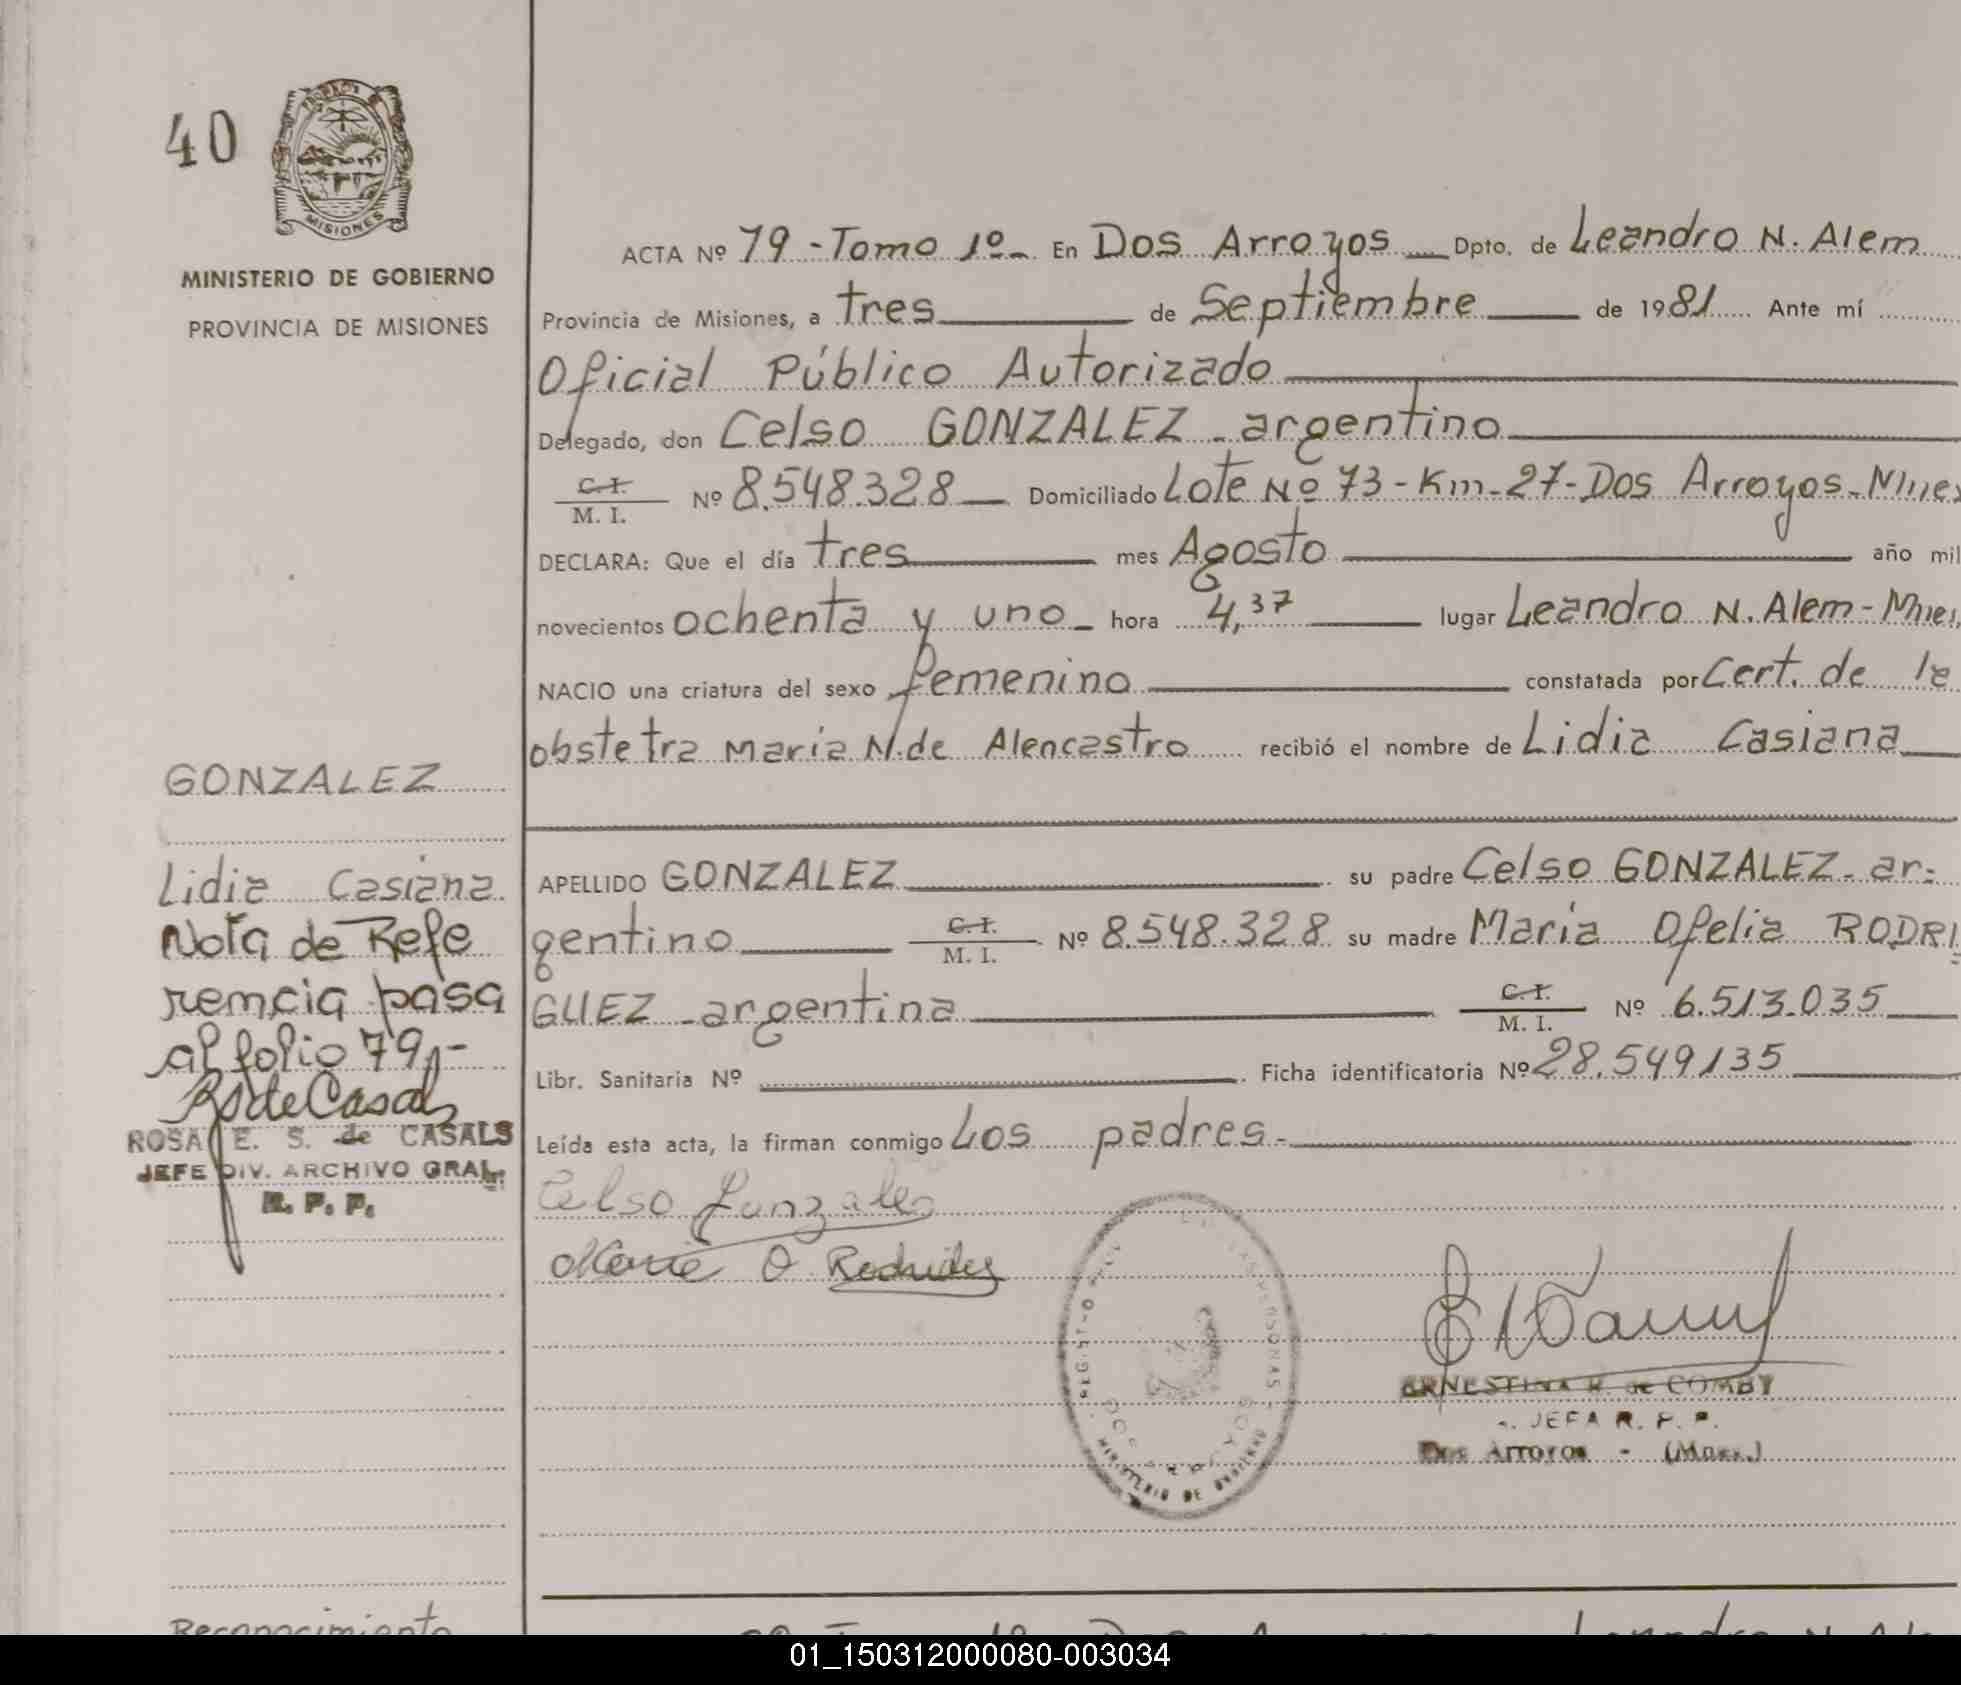 40
MISIONES
MINISTERIO DE GOBIERNO
PROVINCIA DE MISIONES
GONZALEZ
Lidia Casiana
Nota de Refe
rencia pasa
al folio 79,-
RSdeCasals
ROSA E. S. de CASALS
JEFE DIV. ARCHIVO GRAL.
R. P. P.
Reconocimiento
ACTA Nº 79 - Tomo 1º - En Dos Arroyos Dpto. de Leandro N. Alem
Provincia de Misiones, a tres de Septiembre de 1981 Ante mí
Oficial Público Autorizado
Delegado, don Celso GONZALEZ - argentino
C.I. / M. I. Nº 8.548.328 Domiciliado Lote Nº 73 - Km - 27 - Dos Arroyos - Mnes
DECLARA: Que el día tres mes Agosto año mil
novecientos ochenta y uno - hora 4,37 lugar Leandro N. Alem - Mnes
NACIO una criatura del sexo femenino constatada por Cert. de la
obstetra Maria N. de Alencastro recibió el nombre de Lidia Casiana
APELLIDO GONZALEZ su padre Celso GONZALEZ - ar=
gentino C.I. / M. I. Nº 8.548.328 su madre Maria Ofelia RODRI=
GUEZ - argentina C.I. / M. I. Nº 6.513.035
Libr. Sanitaria Nº Ficha identificatoria Nº 28.549135
Leída esta acta, la firman conmigo Los padres.-
Celso Gonzalez
Maria O
REGISTRO DE LAS PERSONAS
DOS ARROYOS
MINISTERIO DE GOBIERNO
ERNESTINA H. de COMBY
JEFA R. P. P.
Dos Arroyos - (Mnes.)
Leandro N. Ale
01_150312000080-003034